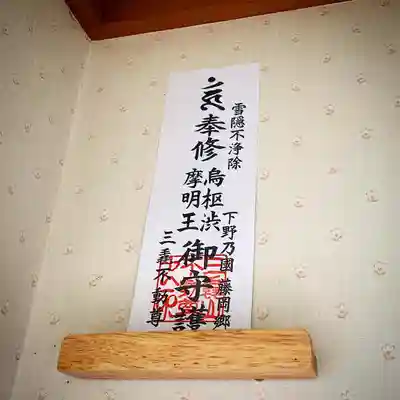 雪隠不浄除
下野乃國藤岡郷
奉修烏枢渋摩明王御守護
三毳不動尊